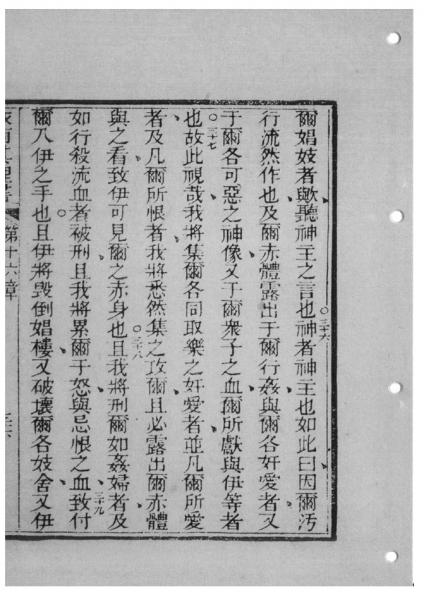 爾娼妓者歟聽神主之言也神者神主也如此曰因爾汚
行流然作也及爾赤體露出于爾行姦與爾各奸愛者又
于爾各可惡之神像又于爾衆子之血爾所獻與伊等者
也故此視哉我將集爾各同取樂之奸愛者並凡爾所愛
者及凡爾所恨者我將悉然集之攻爾且必露出爾赤體
與之看致伊可見爾之赤身也且我將刑爾如姦婦者及
如行殺流血者被刑且我將累爾于怒與忌恨之血致付
爾入伊之手也且伊將毀倒娼樓又破壞爾各妓舍又伊
第十六章
三十六
三十七
三十八
三十九